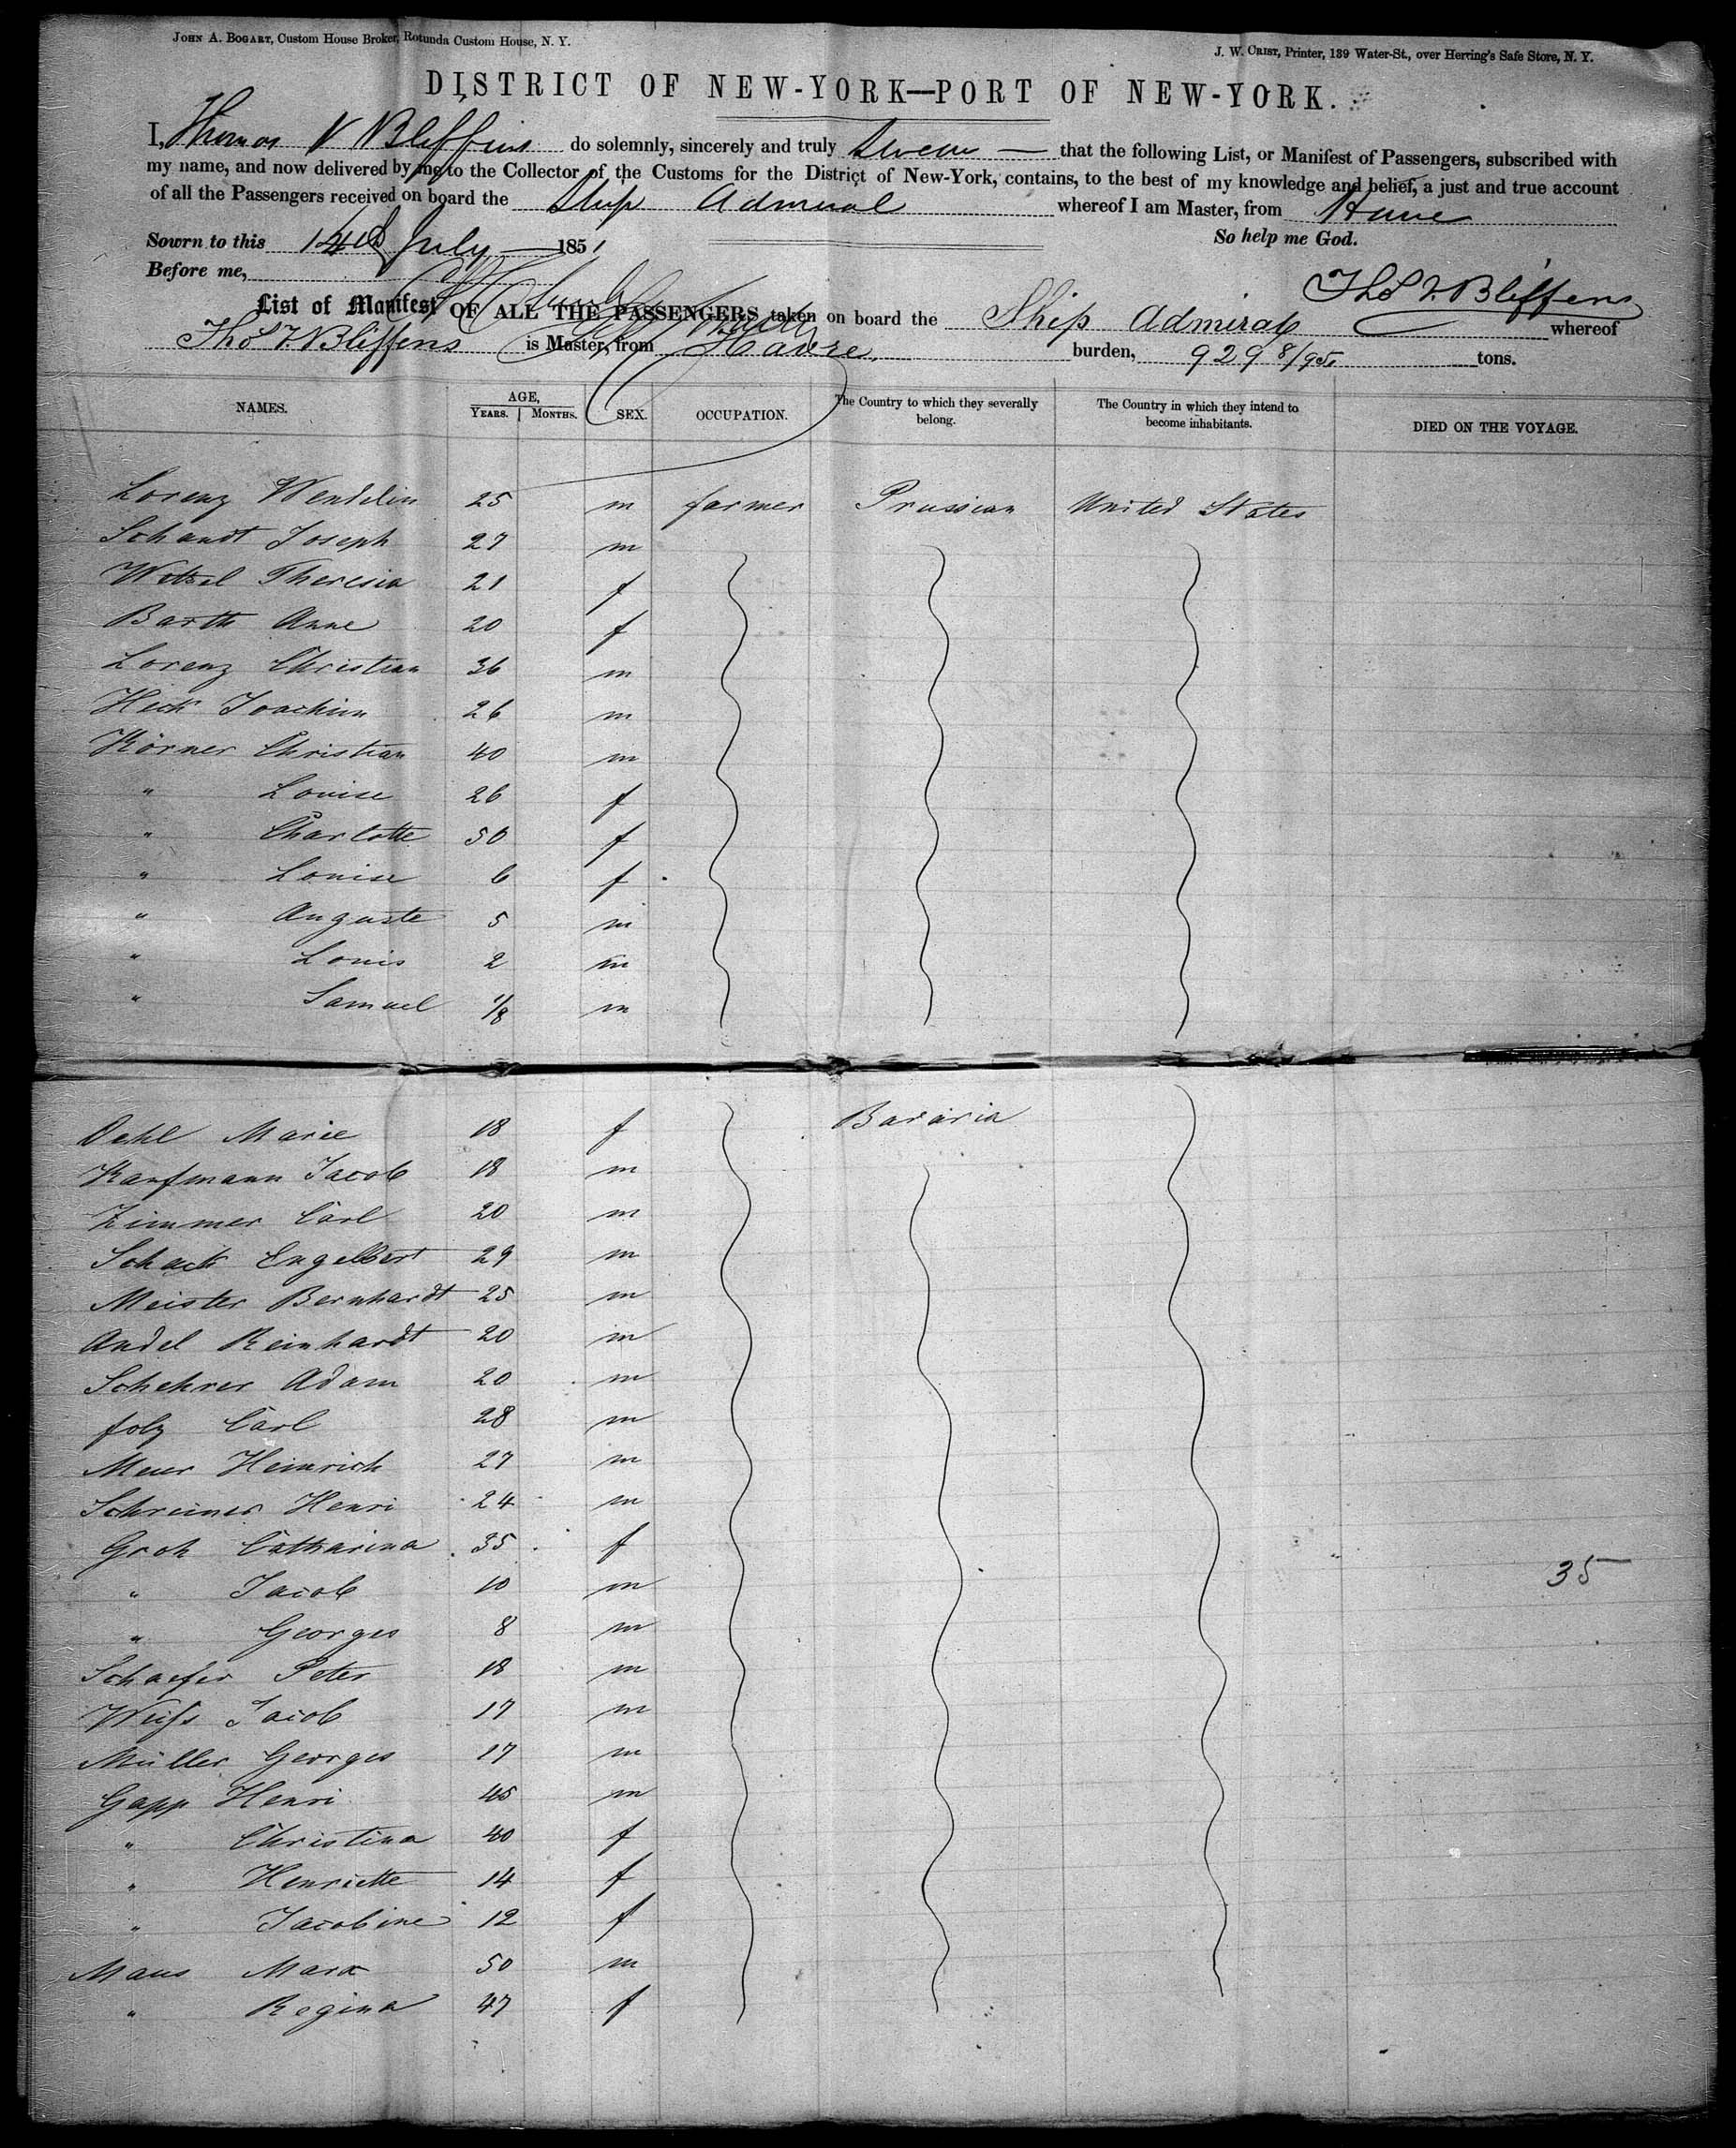 JOHN A. BOGART, Custom House Broker, Rotunda Custom House, N. Y.
J. W. CRIST, Printer, 139 Water-St., over Herring's Safe Store, N. Y.
DISTRICT OF NEW-YORK—PORT OF NEW-YORK.
I, Thomas V Bliffins do solemnly, sincerely and truly swear — that the following List, or Manifest of Passengers, subscribed with
my name, and now delivered by me to the Collector of the Customs for the District of New-York, contains, to the best of my knowledge and belief, a just and true account
of all the Passengers received on board the Ship Admiral whereof I am Master, from Havre
Sowrn to this 14th July 1851 So help me God.
Before me,
Thos. V. Bliffens
List of Manifest OF ALL THE PASSENGERS taken on board the Ship Admiral whereof
Thos V Bliffens is Master, from Havre. burden, 929 8/95 tons.
NAMES. AGE, YEARS. MONTHS. SEX. OCCUPATION. The Country to which they severally belong. The Country in which they intend to become inhabitants. DIED ON THE VOYAGE.
Lorenz Wendelin 25 m farmer Prussian United States
Schandt Joseph 27 m
Wetzel Theresia 21 f
Barth Anne 20 f
Lorenz Christian 36 m
Heck Joachim 26 m
Körner Christian 40 m
" Louise 26 f
" Charlotte 50 f
" Louise 6 f
" Auguste 5 m
" Louis 2 m
" Samuel 1/8 m
Dehl Marie 18 f Bavaria
Kaufmann Jacob 18 m
Zimmer Carl 20 m
Schack Engelbert 29 m
Meister Bernhardt 25 m
Andel Reinhardt 20 m
Schehrer Adam 20 m
folz Carl 28 m
Meuer Heinrich 27 m
Schreiner Henri 24 m
Groh Catharina 35 f
" Jacob 10 m 35
" Georges 8 m
Schaefer Peter 18 m
Weiss Jacob 17 m
Müller Georges 17 m
Gapp Henri 45 m
" Christina 40 f
" Henriette 14 f
" Jacobine 12 f
Maus Marx 50 m
" Regina 47 f